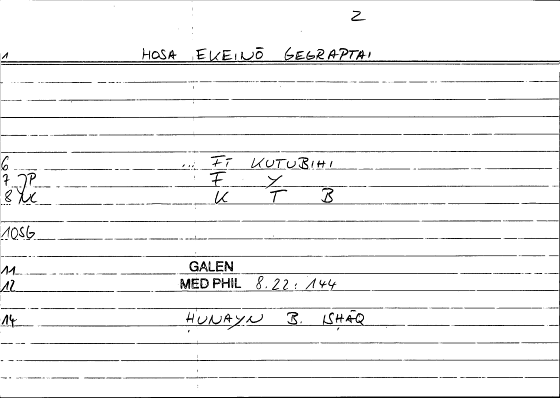 2
1 HOSA EKEINŌ GEGRAPTAI
6 ... FĪ KUTUBIHI
7 P F Y
8 K K T B
10SG
11 GALEN
12 MED PHIL 8.22: 144
14 ḤUNAYN B. ISḤĀQ